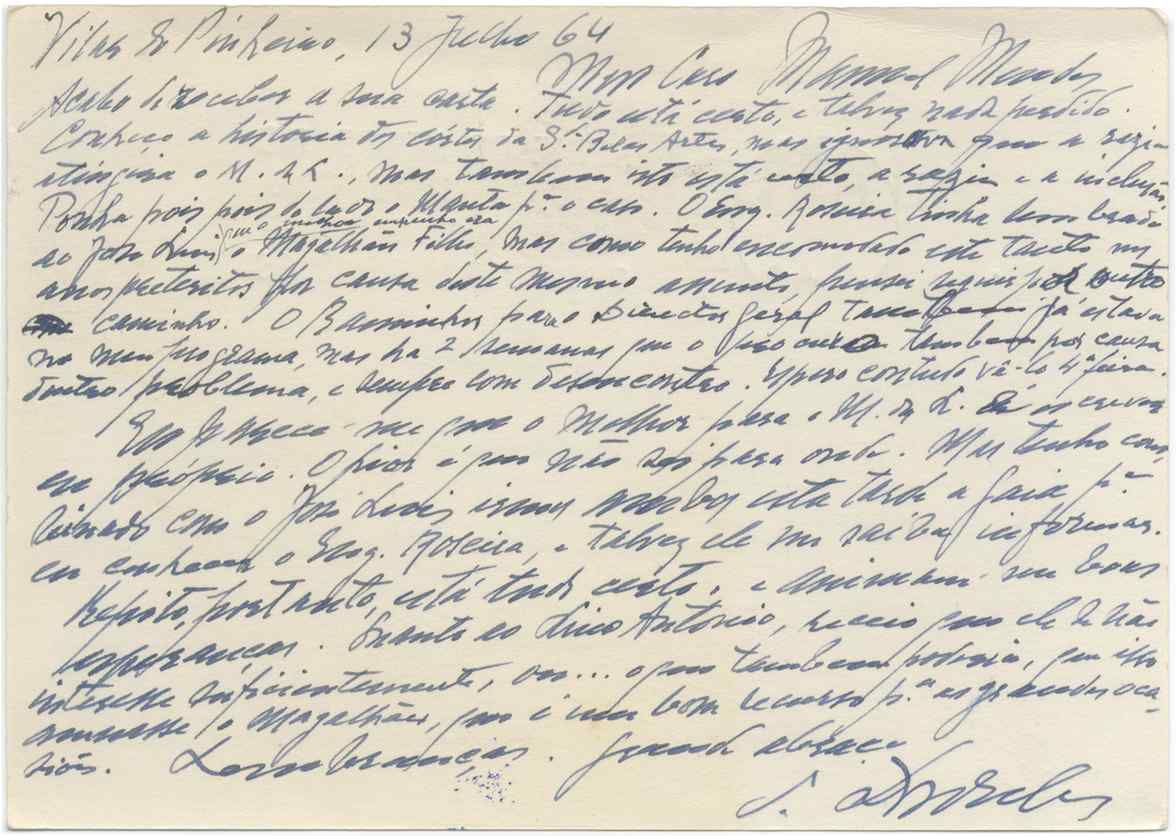 Vilar do Pinheiro, 13 Julho 64
Meu Caro Manuel Mendes
Acabo de receber a sua carta. Tudo está certo, e talvez nada perdido.
Conheço a historia dos córtes da S. Belas Artes, mas ignorava que a
atingira o M. de L., mas tambem isto está certo, a e a inclusão
Ponha pois pois do lado o Manta pª o caso. O Eng. Roseira tinha lembrado
ao José Luis, (que o melhor empenho era
o Magalhães Filho, mas como tenho encomodado este tanto nos
anos preteritos por causa deste mesmo assunto, pensei seguir por outro
caminho. O para o Director Geral tambem já estava
no meu programa, mas ha 2 semanas que o procuro tambem por causa
doutro problema, e sempre com desencontro. Espero contudo vê-lo 4ª feira.
Eu parece-me que o melhor para o M. de L. é escrever
eu próprio. O pior é que não sei para onde. Mas tenho com-
binado com o José Luis irmos ambos esta tarde a Gaia pª
eu conhecer o Eng. Roseira, e talvez ele me saiba informar.
Repito, portanto, está tudo certo, e animam-me boas
esperanças. Quanto ao Lino António, receio que ele se não
interesse suficientemente, ou... o que tambem poderia, que isso
o Magalhães, que é um bom recurso pª as grandes oca-
siões. Lembranças. Grande abraço